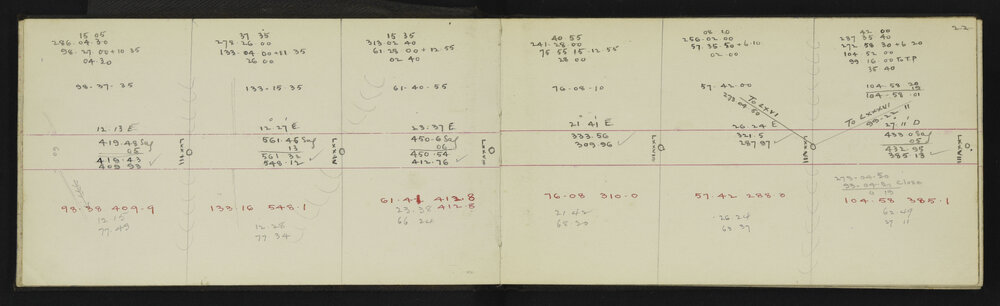 22
15 05
286.04.30
98.27.00+10 35
04.30
98.37.35
12.13 E
419.48 Sag
05
419.43
409.93
LXXIII
98.38 409.9
12 15
77 49
37 35
278 26 00
133.04 00+11 35
26 00
133.15 35
12.27 E
561.45 Sag
13
561 32
548.12
133.16 548.1
12.28
77 34
15 35
313.02 40
61 28 00+12.55
02 40
61.40.55
23.37 E
450.6 Sag
06
450.54
412.76
61.41 412.8
23.38 412.8
66 24
40 55
241.28 00
75 55 15.12 55
28 00
76.08.10
21 41 E
333.56
309.96
76.08 310.0
21.42
68.20
08.20
256.02.00
57.35.50+6.10
02 00
57.42.00
To LXXVI
26.24 E
321.5
287.97
LXXVII
57.42 288.0
26.24
42 00
237 35 40
272 58 30+6 20
104 52 00
99 16 00 To T.P
35 40
104.58 20
104.58.01
To LXXXVI
27 11 D
433.0 Sag
05
432.95
385.13
LXXVIII
273.04.50
93.04.50 Close
0 15
104.58 385.1
62 49
27 11